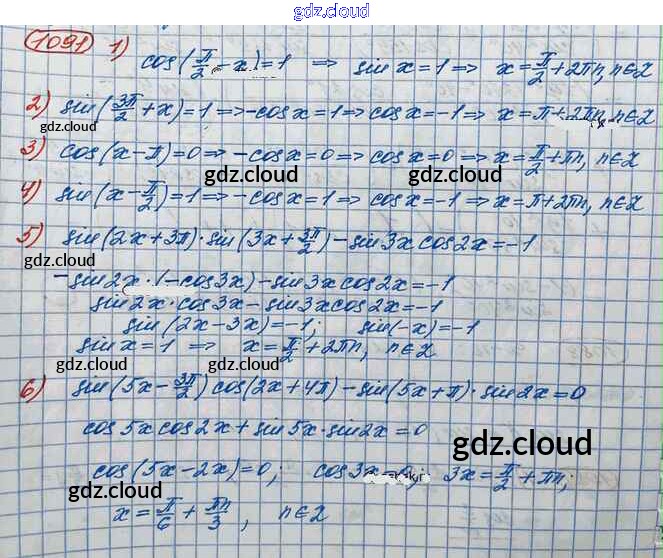 gdz.cloud
1091 1) cos(π/2 − x) = 1 ⇒ sin x = 1 ⇒ x = π/2 + 2πn, n∈Z
2) sin(3π/2 + x) = 1 ⇒ −cos x = 1 ⇒ cos x = −1 ⇒ x = π + 2πn, n∈Z
gdz.cloud gdz.cloud
3) cos(x − π) = 0 ⇒ −cos x = 0 ⇒ cos x = 0 ⇒ x = π/2 + πn, n∈Z
gdz.cloud gdz.cloud
4) sin(x − π/2) = 1 ⇒ −cos x = 1 ⇒ cos x = −1 ⇒ x = π + 2πn, n∈Z
5) sin(2x + 3π)·sin(3x + 3π/2) − sin3x cos2x = −1
gdz.cloud
−sin2x·(−cos3x) − sin3x cos2x = −1
sin2x·cos3x − sin3x cos2x = −1
sin(2x − 3x) = −1; sin(−x) = −1
sin x = 1 ⇒ x = π/2 + 2πn, n∈Z
gdz.cloud gdz.cloud
6) sin(5x − 3π/2) cos(2x + 4π) − sin(5x + π)·sin2x = 0
cos5x cos2x + sin5x·sin2x = 0
gdz.cloud
cos(5x − 2x) = 0; cos3x = 0; 3x = π/2 + πn;
gdz.cloud
x = π/6 + πn/3, n∈Z